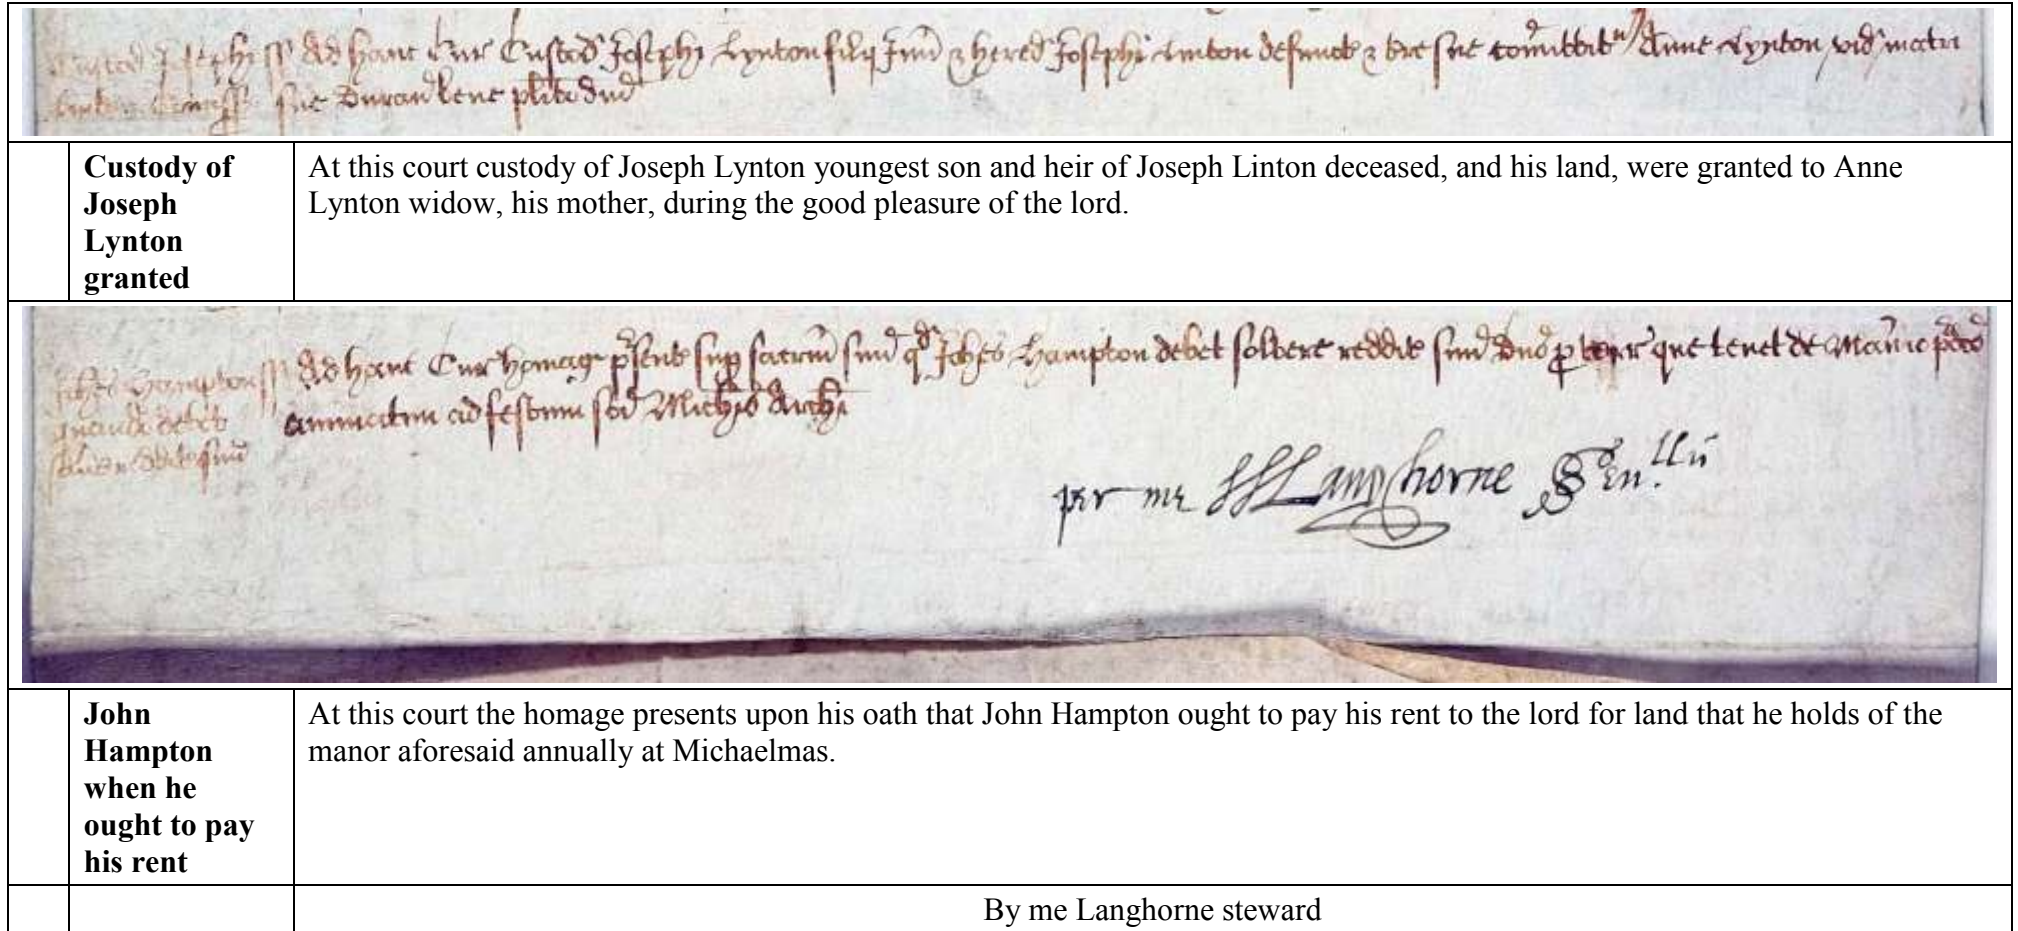 Ad hanc Cur Custod Josephi Lynton filij Jun & hered Josephi Linton defunct & tre sue comittit Anne Lynton vid matri
sue Duran bene plito Dni
Custody of Joseph Lynton granted
At this court custody of Joseph Lynton youngest son and heir of Joseph Linton deceased, and his land, were granted to Anne
Lynton widow, his mother, during the good pleasure of the lord.
Johes Hampton
Ad hanc Cur homag psent sup sacrm suu qd Johes Hampton debet solvere reddit suu Dno p terr que tenet de Manio pdco
annuatim ad festum Michis Archi
per me Langhorne Senllu
John
Hampton
when he
ought to pay
his rent
At this court the homage presents upon his oath that John Hampton ought to pay his rent to the lord for land that he holds of the
manor aforesaid annually at Michaelmas.
By me Langhorne steward